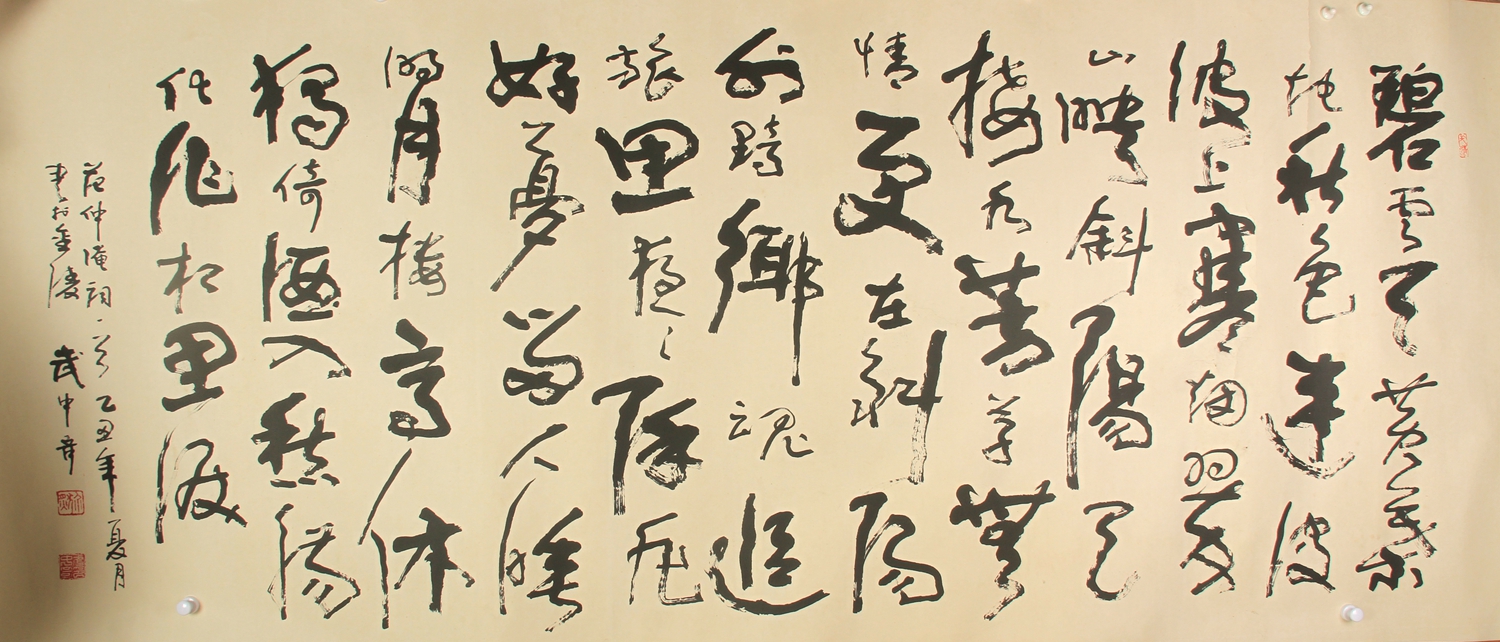 碧雲天黄葉
地秋色連波
波上寒烟翠
山映斜陽天
接水芳草無
情更在斜陽
外黯鄉魂追
旅思夜々除非
好夢留人睡
明月樓高休
獨倚酒入愁腸
化作相思淚
范仲淹詞一首 乙丑年夏月
書於金陵 武中奇